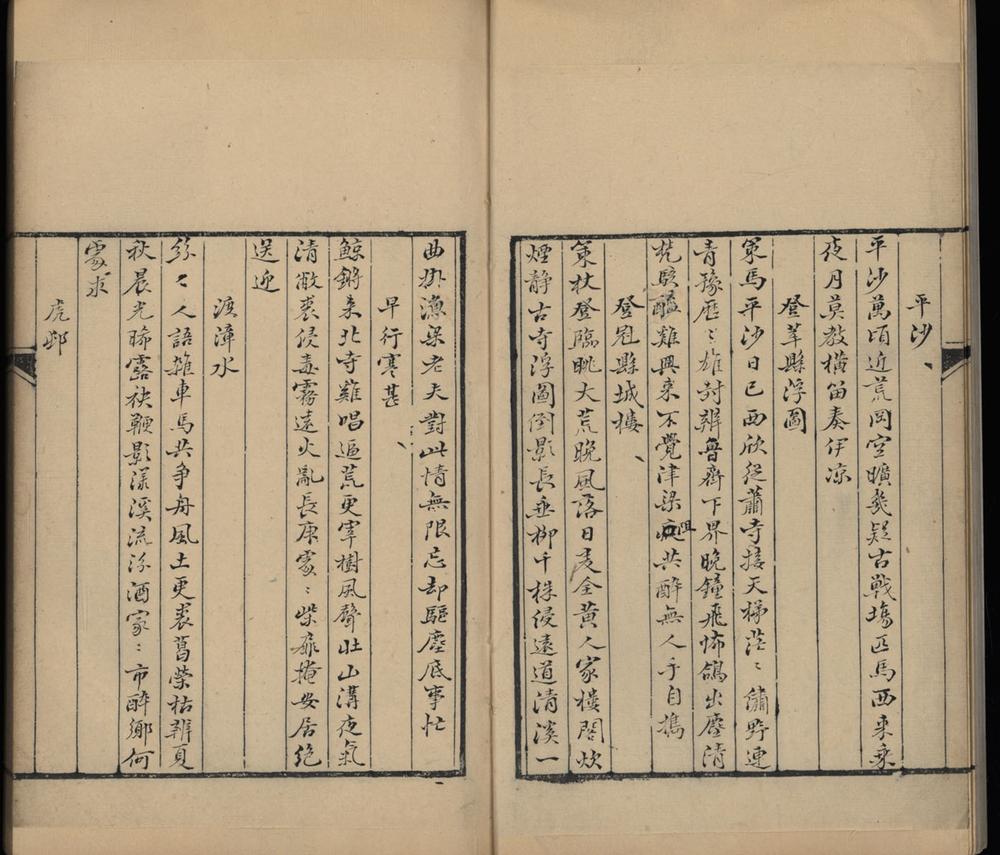 平沙
平沙萬頃近荒岡空曠幾疑古戰場匹馬西來乘
夜月莫教橫笛奏伊涼
登莘縣浮圖
策馬平沙日已西欣從蕭寺接天梯茫〻繡野連
青豫歷〻雄封辨魯齊下界晚鐘飛怖鴿出塵清
梵駭醯雞興來不覺津梁疲阻共醉無人手自攜
登冠縣城樓
策杖登臨眺大荒晚風落日麥全黃人家樓閣炊
煙静古寺浮圖倒影長垂柳千株侵遠道清溪一
曲掛漁梁老夫對此情無限忘却驅塵底事忙
早行寒甚
鯨鏘來北寺雞唱逼荒更宰樹風聲壯山溝夜氣
清敝裘侵毒霧遠火亂長庚家〻柴扉掩安居絶
送迎
渡漳水
紛〻人語雜車馬共争舟風土更裘葛榮枯辨夏
秋晨光晞露袂鞭影漾溪流沽酒家〻市醉鄉何
處求
虎邨